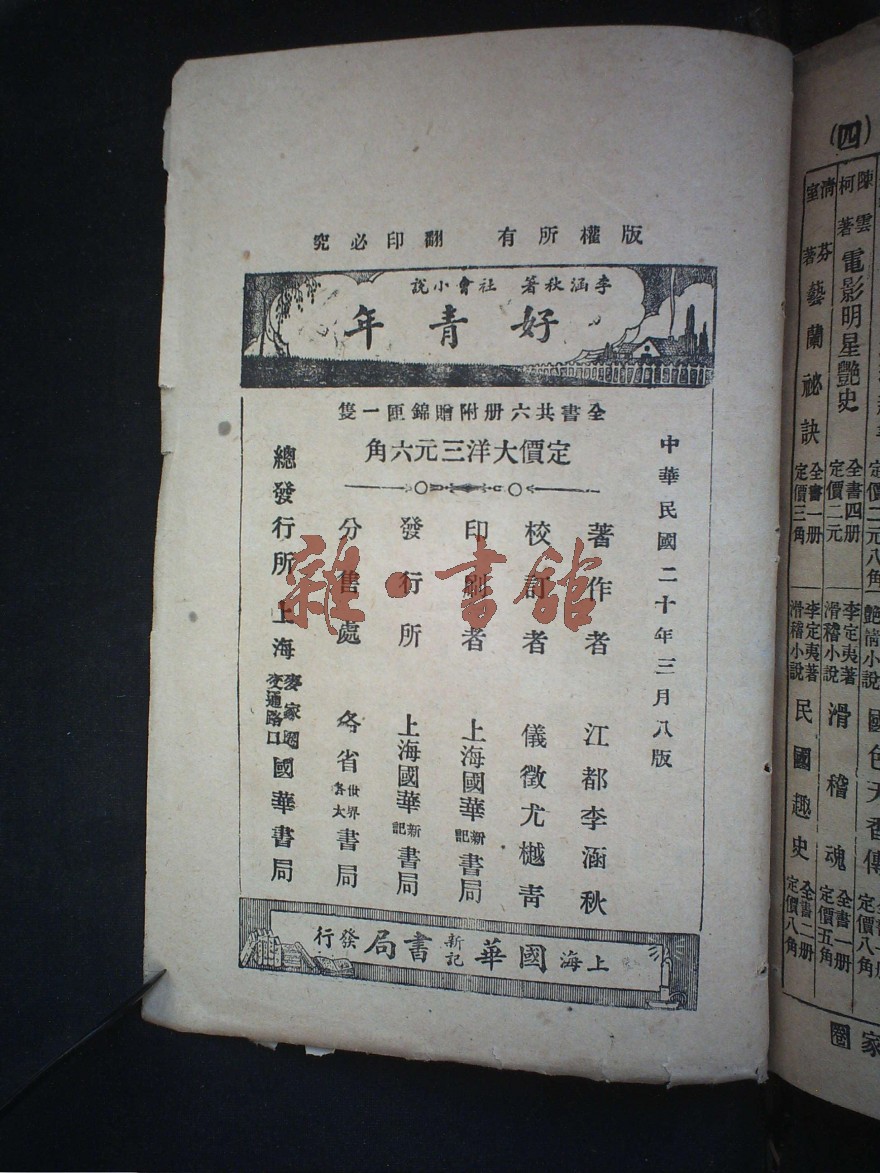 版權所有 翻印必究
李涵秋著 社會小說
好青年
全書共六册附贈錦匣一隻
定價大洋三元六角
中華民國二十年三月八版
著作者 江都李涵秋
校訂者 儀徵尤樾青
印刷者 上海國華新記書局
發行所 上海國華新記書局
分售處 各省世界各大書局
總發行所 上海麥家圈交通路口國華書局
上海國華新記書局發行
雜·書舘
(四)
定價二元八角
艷情小說 國色天香傳
定價八角
陳雲柯著 電影明星艷史 全書四册 定價二元
李定夷著 滑稽小說 滑稽魂 全書一册 定價五角
清芬室著 藝蘭祕訣 全書一册 定價三角
李定夷著 滑稽小說 民國趣史 全書二册 定價八角
家圈